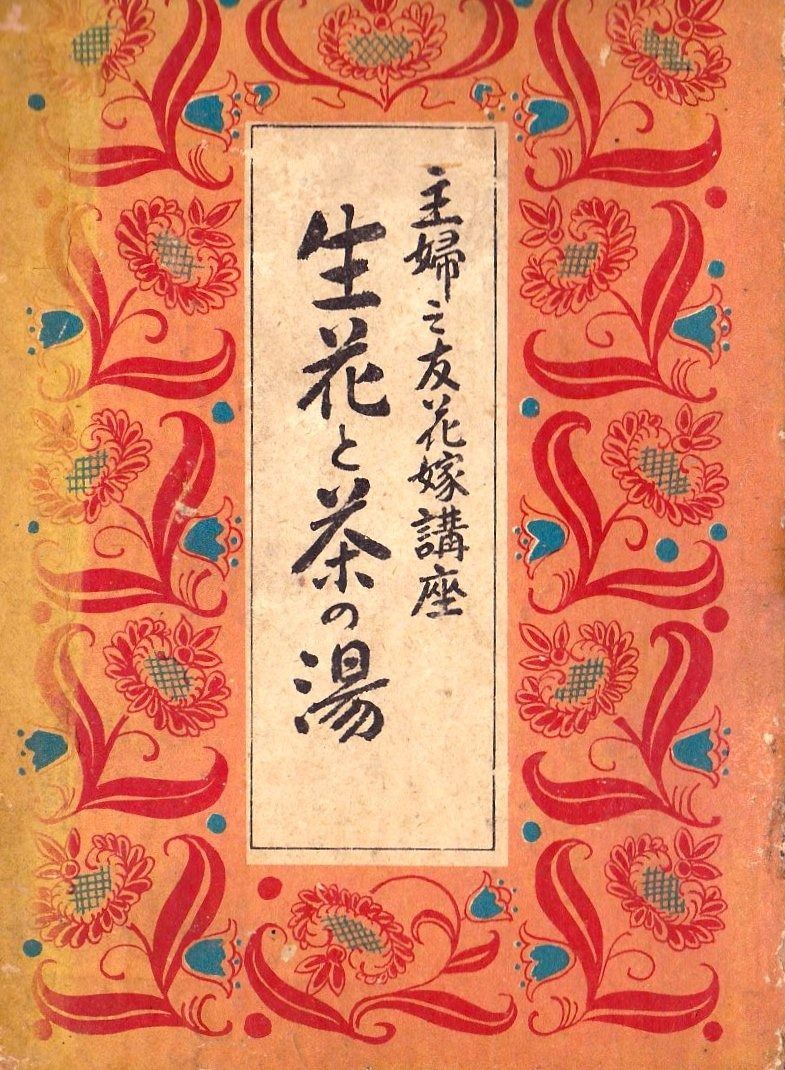 主婦之友花嫁講座
生花と茶の湯